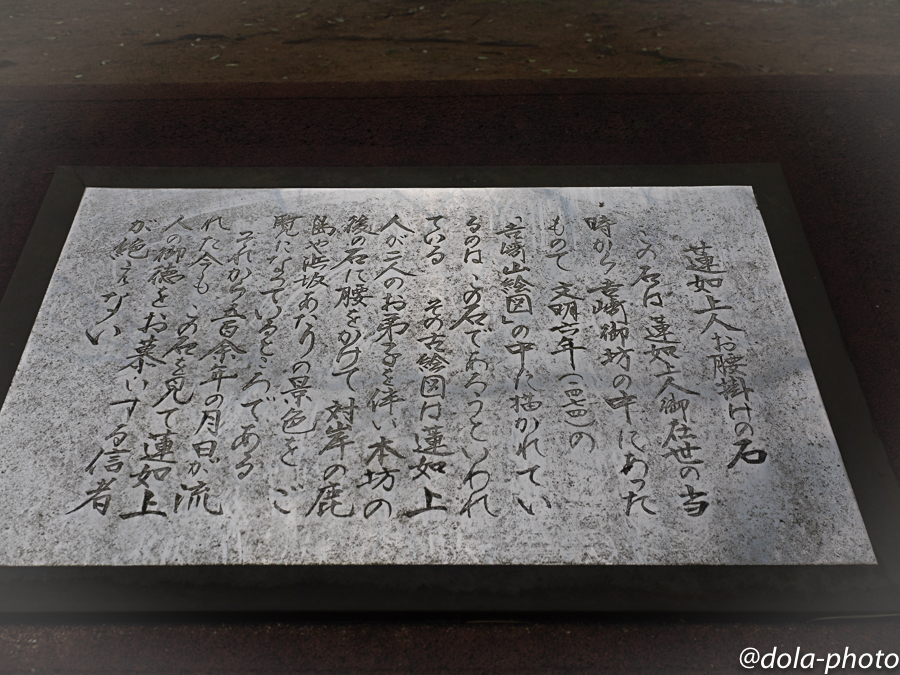 蓮如上人お腰掛けの石
この石は 蓮如上人御在世の当
時から 吉崎御坊の中にあった
もので 文明六年(一四七四)の
「吉崎山絵図」の中に描かれてい
るのは、この石であろうといわれ
ている その古絵図は 蓮如上
人が二人のお弟子を伴い 本坊の
後の石に腰をかけて 対岸の鹿
島や浜坂あたりの景色を ご
覧になっているところである
それから 五百余年の月日が流
れた今も、この石を見て 蓮如上
人の御徳をお慕いする信者
が絶えない
@dola-photo